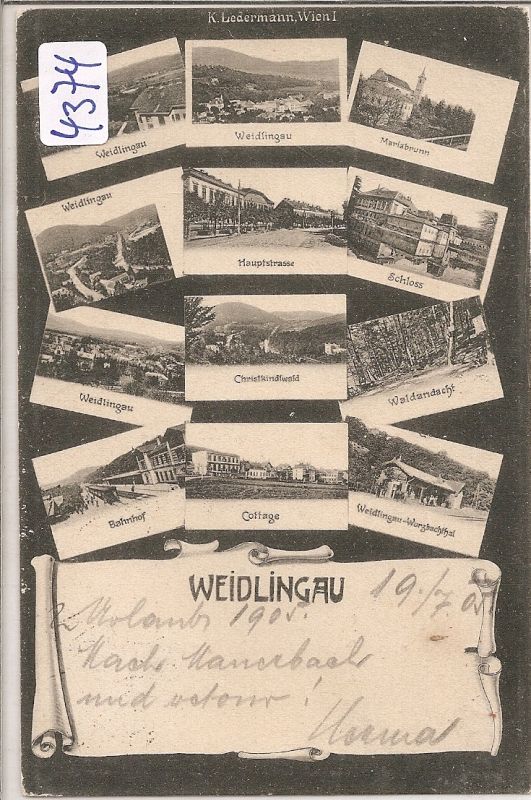 K. Ledermann, Wien I
4374
Weidlingau
Weidlingau
Mariabrunn
Weidlingau
Hauptstrasse
Schloss
Weidlingau
Christkindlwald
Waldandacht
Bahnhof
Cottage
Weidlingau-Wurzbachthal
WEIDLINGAU
19./7. 05
Urlaub 1905.
Nach Mauerbach
und retour !